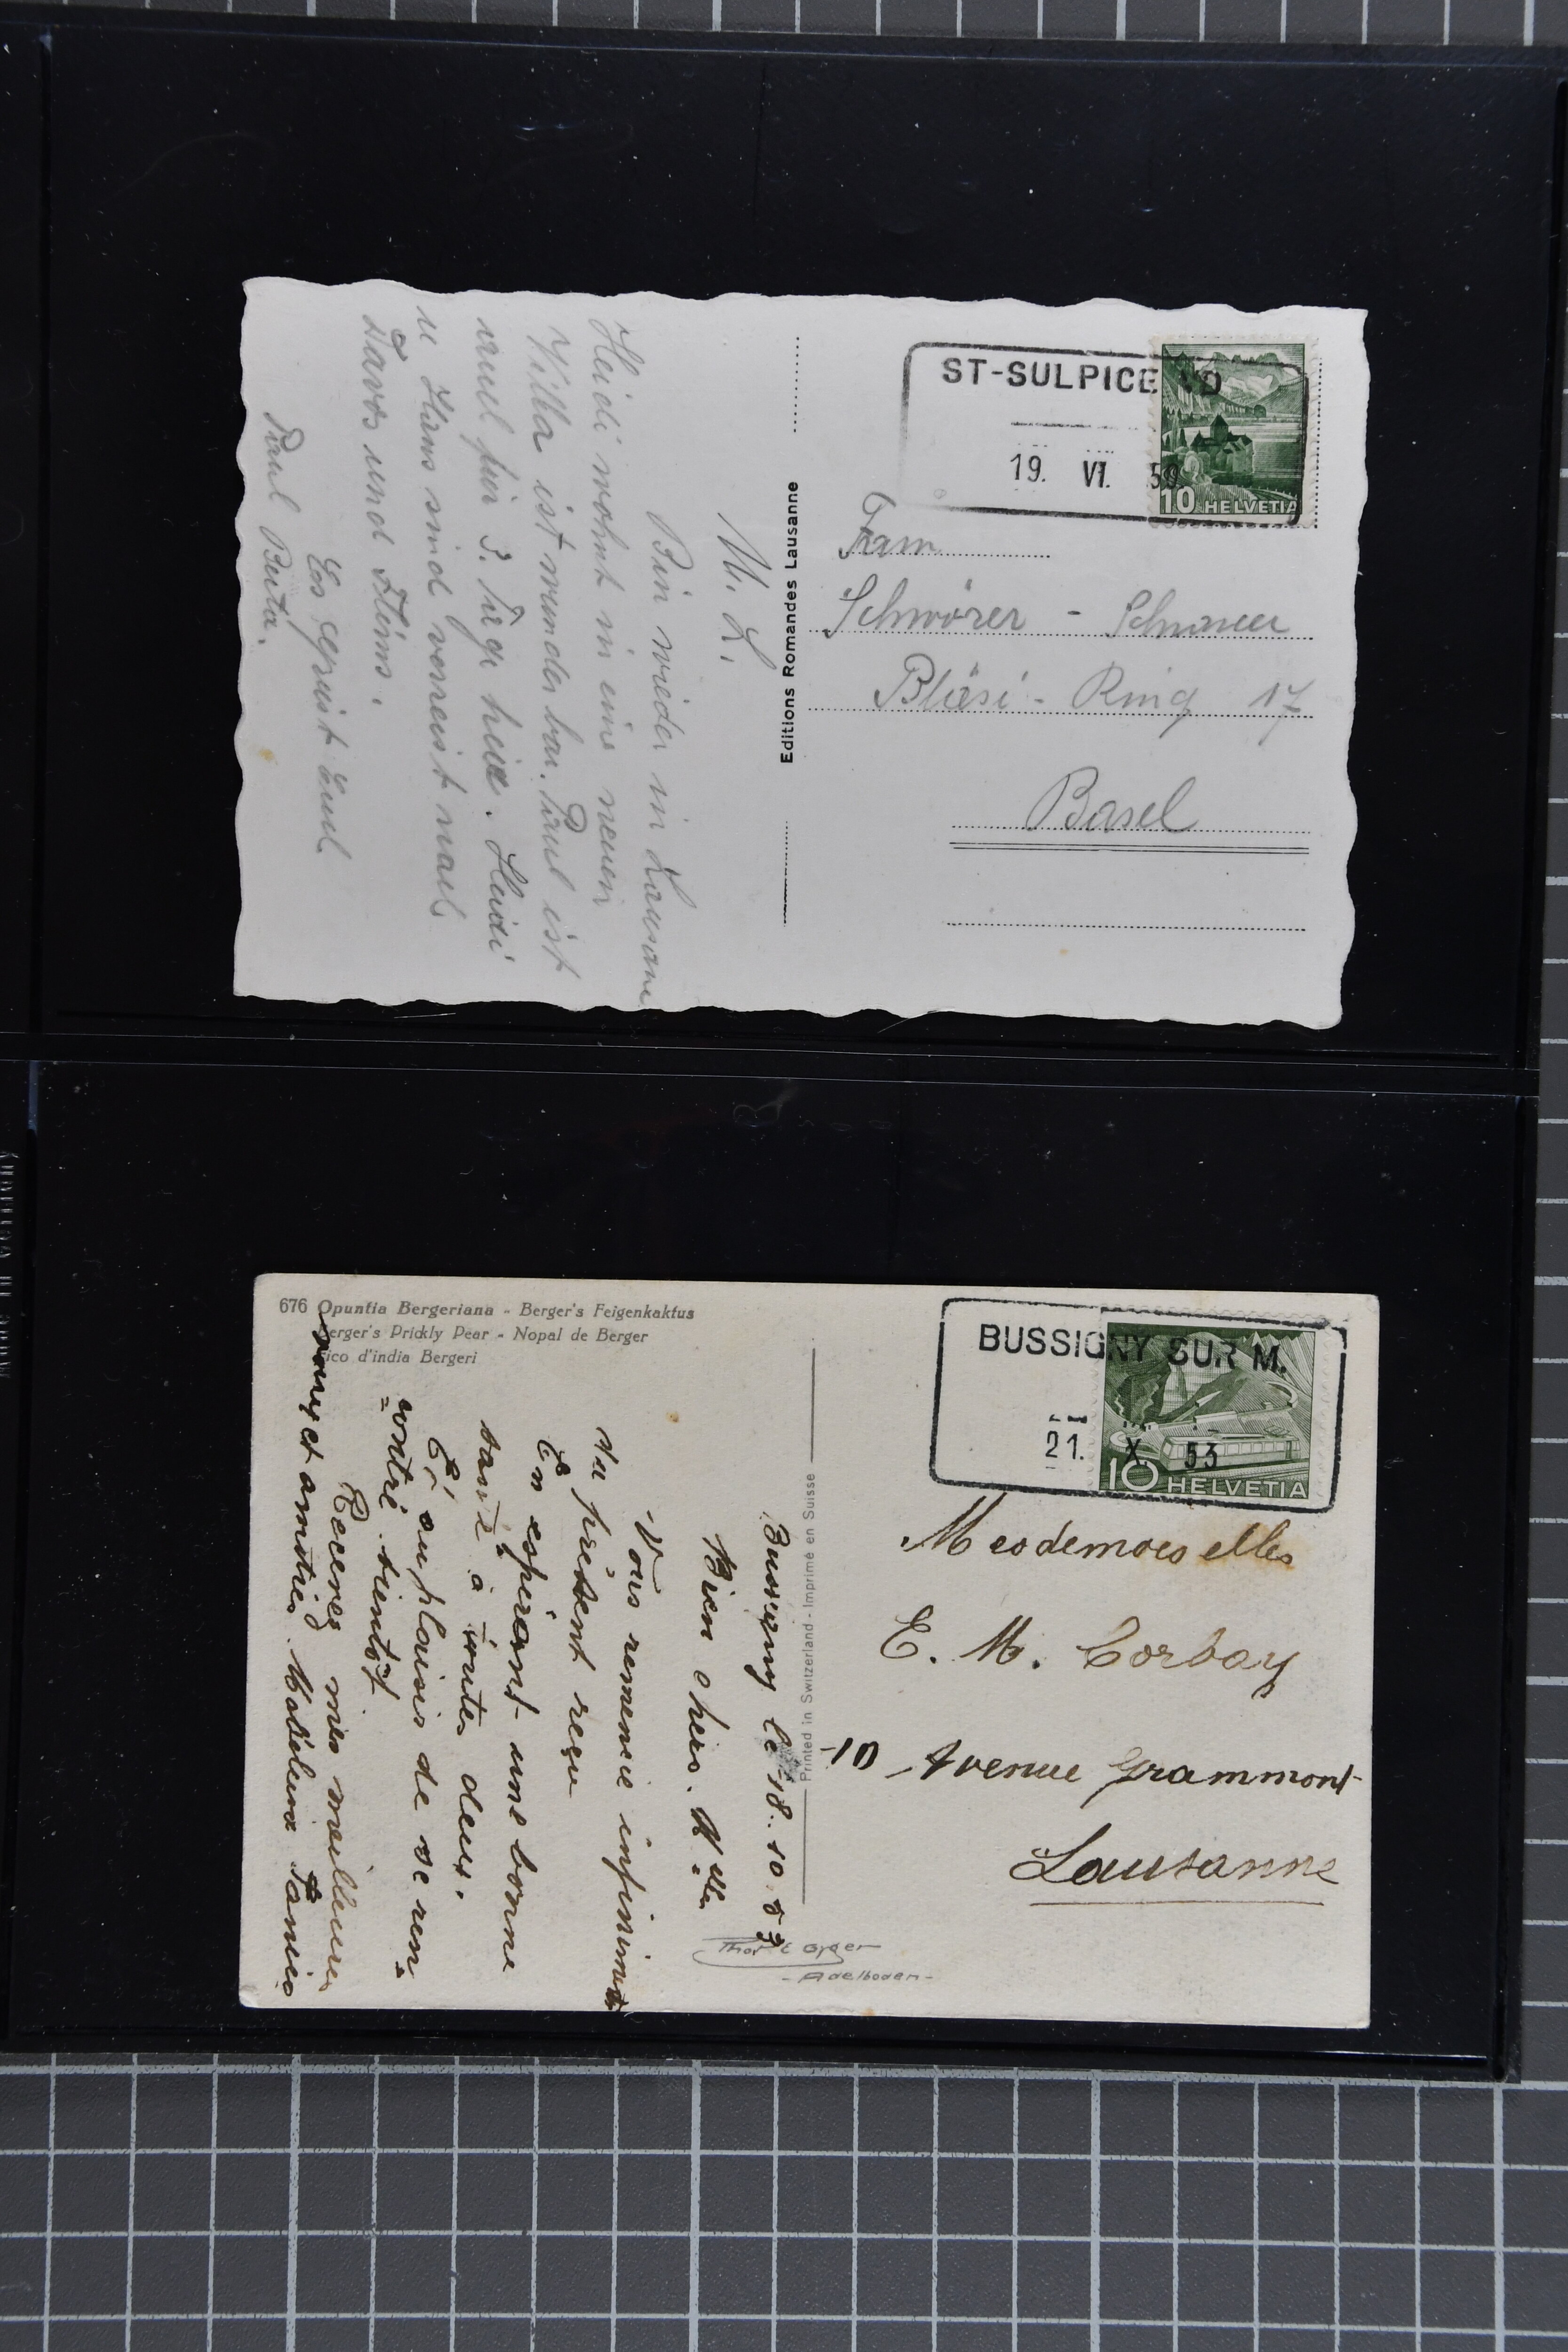 ST-SULPICE VD
19. VI. 50.
10 HELVETIA
Fam.
Schwörer - Schnneer
Bläsi - Ring 17
Basel
Editions Romandes Lausanne
M. L.
Bin wieder in Lausanne
Heidi wohnt in eine neuen
Villa ist wunderbar. Paul ist
auch für 3. Tage hier. Heidi
u Hans sind verreist nach
Davos und Flims.
Es grüsst Euch
Paul Berta.
676 Opuntia Bergeriana - Berger's Feigenkaktus
Berger's Prickly Pear - Nopal de Berger
Fico d'india Bergeri
BUSSIGNY SUR M.
21. X. 53
10 HELVETIA
Mesdemoiselles
E. M. Corbay
10 Avenue Grammont
Lausanne
Printed in Switzerland - Imprimé en Suisse
Bussigny le 18. 10. 53
Bien chers. Mlles
Vous remercie infiniment
du présent reçu
En espérant une bonne
santé à toutes deux.
Et au plaisir de se ren=
=contré bientôt
Recevez mes meilleures
et amitiés.
Adelboden